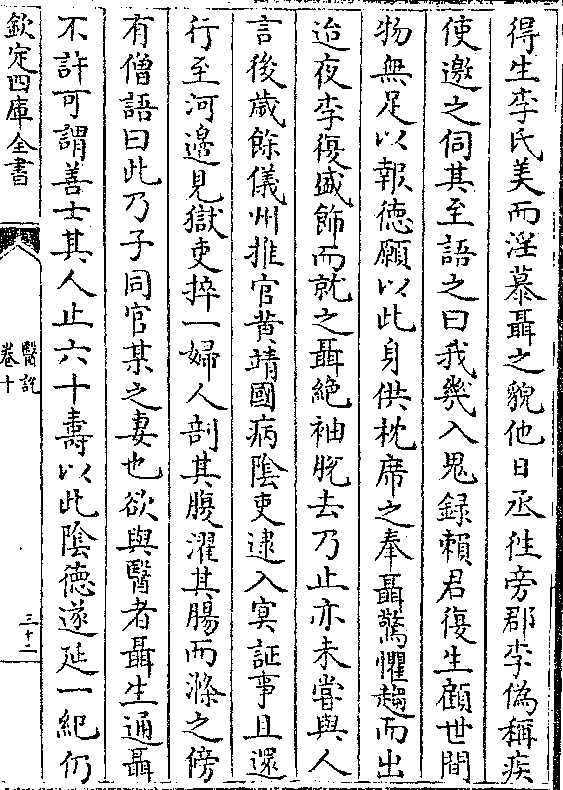 得生李氏美而淫慕聶之貌他日丞徃旁郡李偽稱疾
使邀之伺其至語之曰我幾入鬼録賴君復生顧世間
物無足以報徳願以此身供枕席之奉聶驚懼趨而出
迨夜李復盛飾而就之聶絶袖脱去乃止亦未嘗與人
言後歲餘儀州推官黄靖國病隂吏逮入㝠証事且還
行至河邉見獄吏捽一婦人剖其腹濯其腸而滌之傍
有僧語曰此乃子同官某之妻也欲與醫者聶生通聶
不許可謂善士其人止六十夀以此隂徳遂延一紀仍
欽定四庫全書
醫説
卷十
三十二